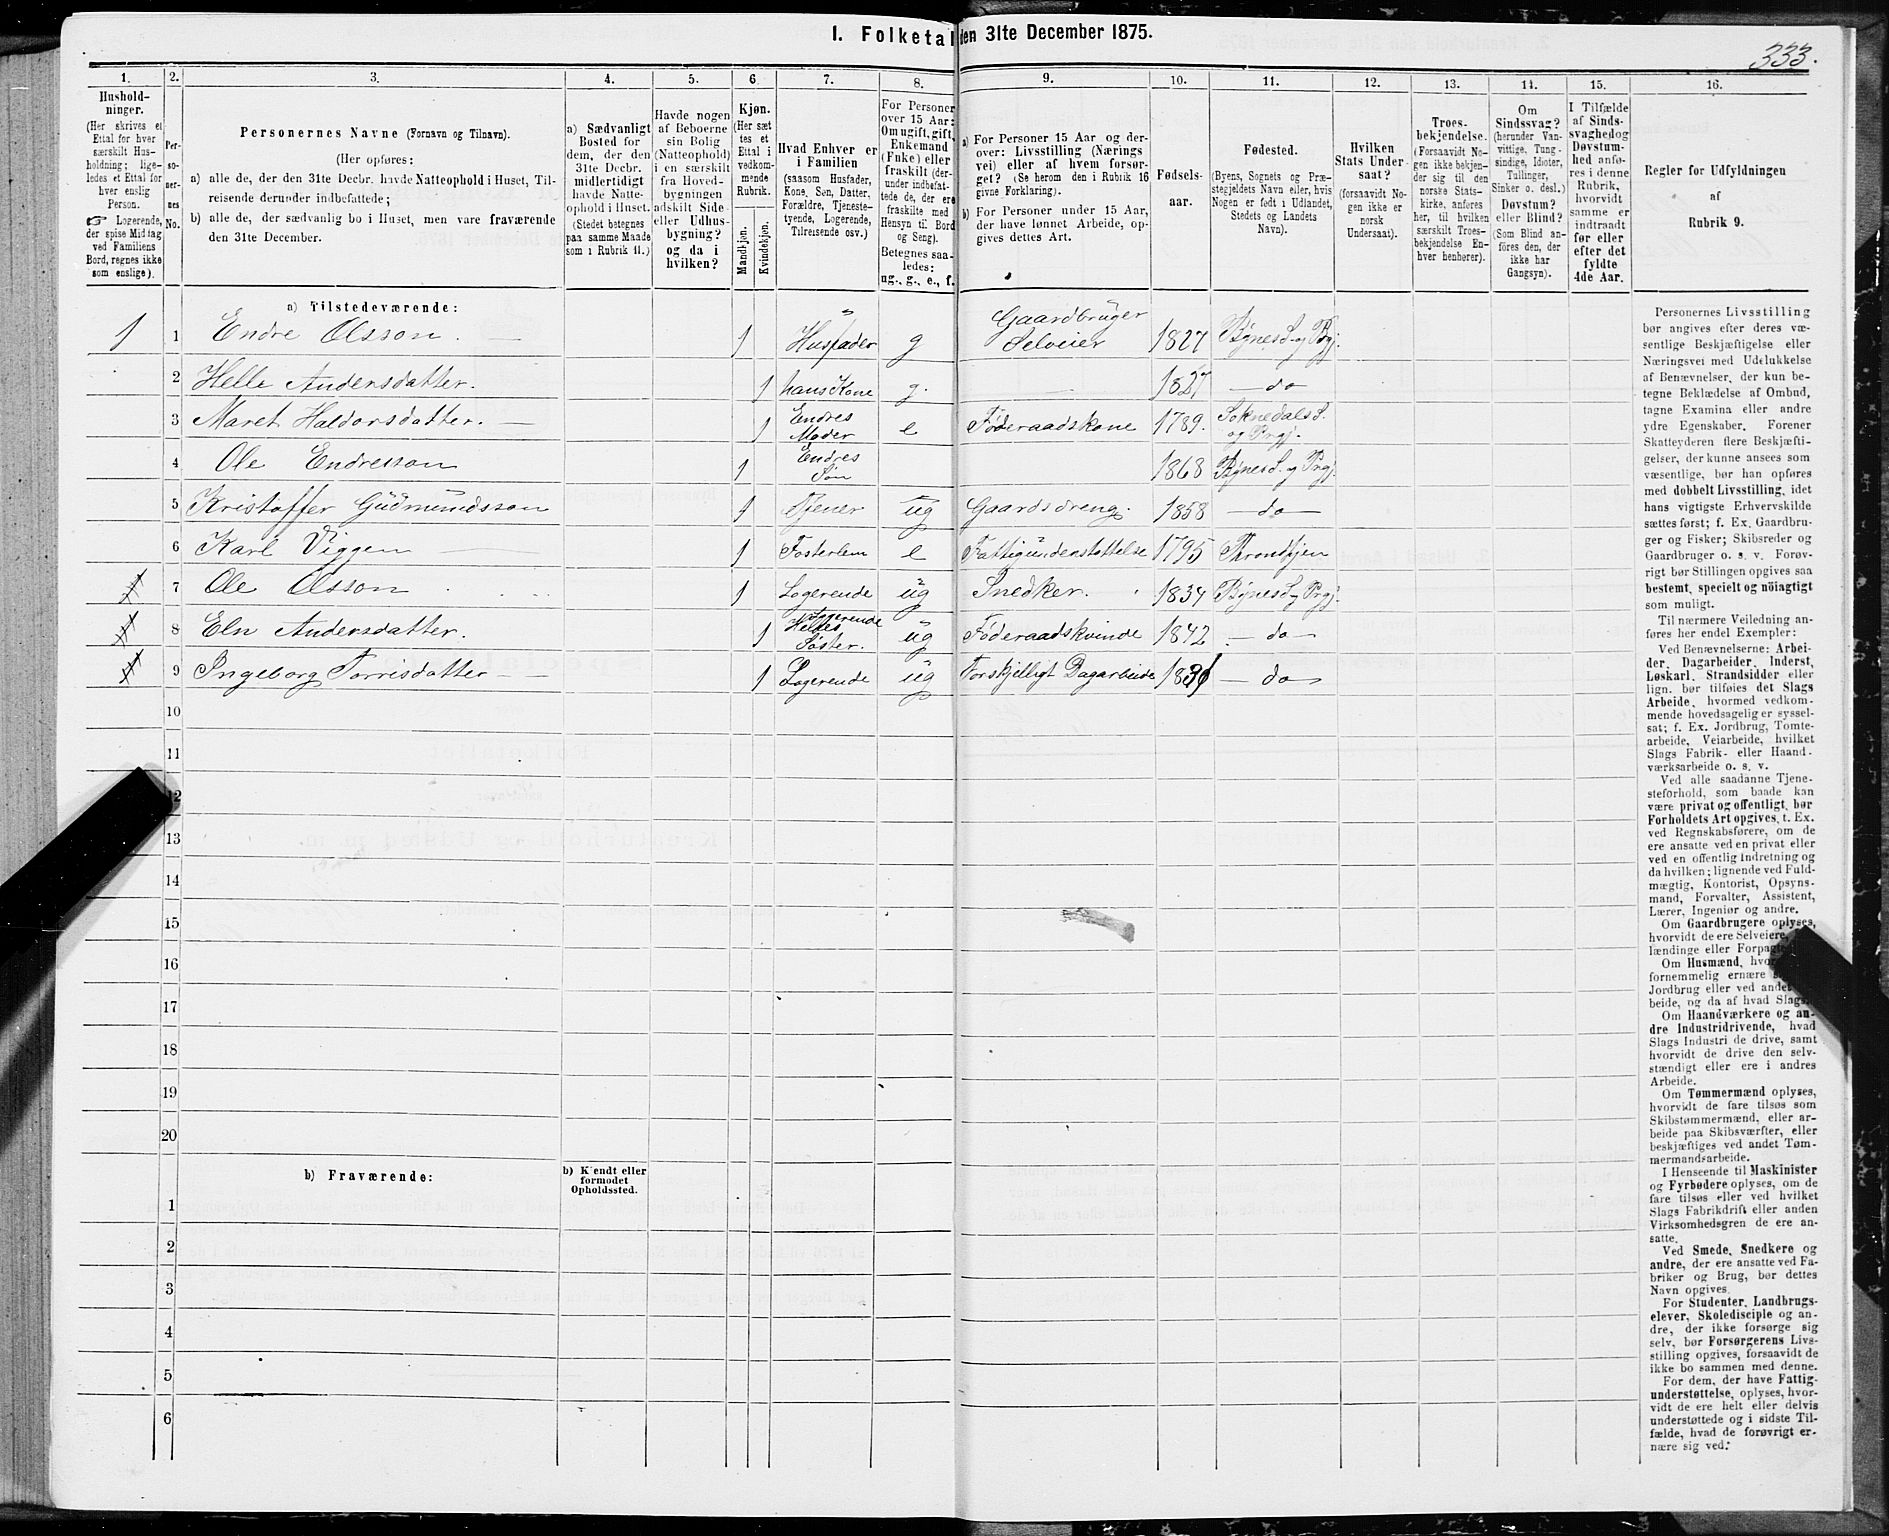 I. Folketal den 31te December 1875.
333.
1. 2. 3. 4. 5. 6. 7. 8. 9. 10. 11. 12. 13. 14. 15. 16.
Hushold-
ninger.
(Her skrives et
Ettal for hver
særskilt Hus-
holdning; lige-
ledes et Ettal for
hver enslig
Person.
☞ Logerende,
der spise Middag
ved Familiens
Bord, regnes ikke
som enslige).
Per-
so-
ner-
nes
No.
Personernes Navne (Fornavn og Tilnavn).
(Her opføres:
a) alle de, der den 31te Decbr. havde Natteophold i Huset, Til-
reisende derunder indbefattede;
b) alle de, der sædvanlig bo i Huset, men vare fraværende
den 31te December.
a) Sædvanligt
Bosted for
dem, der den
31te Decbr.
midlertidigt
havde Natte-
ophold i Huset.
(Stedet betegnes
paa samme Maade
som i Rubrik 11.)
Havde nogen
af Beboerne
sin Bolig
(Natteophold)
i en særskilt
fra Hoved-
bygningen
adskilt Side-
eller Udhus-
bygning?
og da i
hvilken?
Kjøn.
(Her sæt
tes et
Ettal i
vedkom-
mende
Rubrik.
Mandkjøn.
Kvindekjøn.
Hvad Enhver er
i Familien
(saasom Husfader,
Kone, Søn, Datter,
Forældre, Tjeneste-
tyende, Logerende,
Tilreisende osv.)
For Personer
over 15 Aar:
Om ugift, gift,
Enkemand
(Enke) eller
fraskilt (der-
under indbefat-
tede de, der ere
fraskilte med
Hensyn til Bord
og Seng).
Betegnes saa-
ledes:
ug., g., e., f.
a) For Personer 15 Aar og der-
over: Livsstilling (Nærings
vei) eller af hvem forsør-
get? (Se herom den i Rubrik 16
givne Forklaring).
b) For Personer under 15 Aar,
der have lønnet Arbeide, op-
gives dettes Art.
Fødsels-
aar.
Fødested.
(Byens, Sognets og Præ-
stegjeldets Navn eller, hvis
Nogen er født i Udlandet,
Stedets og Landets
Navn).
Hvilken
Stats Under-
saat?
(forsaavidt No-
gen ikke er
norsk
Undersaat).
Troes-
bekjendelse.
(Forsaavidt No-
gen ikke bekjen-
der sig til den
norske Stats-
kirke, anføres
her, til hvilken
særskilt Troes-
bekjendelse En-
hver henhører).
Om
Sindssvag?
(herunder Van-
vittige, Tung-
sindige, Idioter,
Tullinger,
Sinker o. desl.)
Døvstum?
eller Blind?
(Som Blind an-
føres den, der
ikke har
Gangsyn).
I Tilfælde
af Sinds-
svaghed og
Døvstum-
hed anfø-
res i denne
Rubrik,
hvorvidt
samme er
indtraadt
før eller
efter det
fyldte
4de Aar.
Regler for Udfyldningen
af
Rubrik 9.
a) Tilstedeværende:
1 1 Endre Olsson. 1 Husfader g Gaardbruger Selveier 1827 Bynes S. og Prgj.
2 Helle Andersdatter. 1 hans Kone g. 1827 do
3 Maret Haldorsdatter. 1 Endres Moder e Føderaadskone 1789. Soknedals S. og Prgj.
4 Ole Endresson 1 Endres Søn 1868 Bynes S. og Prgj.
5 Kristoffer Gudmundsson 1 Tjener ug Gaardsdreng. 1858 do
6 Karl Viggen 1 Fosterlem e Fattigunderstøttelse 1795 Throndhjem
7 Ole Olsson 1 Logerende ug Snedker. 1834 Bynes S. og Prgj.
8 Eln Andersdatter. 1 Logerende Helles Søster. ug Føderaadskvinde 1842 do
9 Ingeborg Torrisdatter 1 Logerende ug Forskjelligt Dagarbeide 1831 do
10
11
12
13
14
15
16
17
18
19
20
b) Fraværende:
b) Kjendt eller
formodet
Opholdssted.
1
2
3
4
5
6
Personernes Livsstilling
bør angives efter deres væ-
sentlige Beskjæftigelse eller
Næringsvei med Udelukkelse
af Benævnelser, der kun be-
tegne Beklædelse af Ombud,
tagne Examina eller andre
ydre Egenskaber. Forener
Skatteyderen flere Beskjæfti-
gelser, der kunne ansees som
væsentlige, bør han opføres
med dobbelt Livsstilling, idet
hans vigtigste Erhvervskilde
sættes først; f. Ex. Gaardbru-
ger og Fisker; Skibsreder og
Gaardbruger o. s. v. Forøv-
rigt bør Stillingen opgives saa
bestemt, specielt og nöiagtigt
som muligt.
Til nærmere Veiledning an-
føres her endel Exempler:
Ved Benævnelserne: Arbei-
der, Dagarbeider, Inderst,
Løskarl, Strandsidder eller
lign. bør tilføies det Slags
Arbeide, hvormed vedkom-
mende hovedsagelig er syssel-
sat; f. Ex. Jordbrug, Tomte-
arbeide, Veiarbeide, hvilket
Slags Fabrik- eller Haand-
værksarbeide o. s. v.
Ved alle saadanne Tjene-
steforhold, som baade kan
være privat og offentligt, bør
Forholdets Art opgives, t. Ex.
ved Regnskabsførere, om de
ere ansatte ved en privat eller
ved en offentlig Indretning og
da hvilken; lignende ved Fuld-
mægtig, Kontorist, Opsyns-
mand, Forvalter, Assistent,
Lærer, Ingeniør og andre.
Om Gaardbrugere oplyses,
hvorvidt de ere Selveiere,
lændinge eller
Om Husmænd,
fornemmelig ernære
Jordbrug eller ved andet
beide, og da af hvad Slags.
Om Haandværkere og an-
dre Industridrivende, hvad
Slags Industri de drive, samt
hvorvidt de drive den selv-
stændigt eller ere i andres
Arbeide.
Om Tømmermænd oplyses,
hvorvidt de fare tilsøs som
Skibstømmermænd, eller ar-
beide paa Skibsværfter, eller
beskjæftiges ved andet Tøm-
mermandsarbeide.
I Henseende til Maskinister
og Fyrbødere oplyses, om de
fare tilsøs eller ved hvilket
Slags Fabrikdrift eller anden
Virksomhedsgren de ere an-
satte.
Ved Smede, Snedkere og
andre, der ere ansatte ved Fa-
briker og Brug, bør dettes
Navn opgives.
For Studenter, Landbrugs-
elever, Skoledisciple og an-
dre, der ikke forsørge sig
selv, bør Forsørgerens Livs-
stilling opgives, forsaavidt de
ikke bo sammen med denne.
For dem, der have Fattig-
understøttelse, oplyses, hvor-
vidt de ere helt eller delvis
understøttede og i sidste Til-
fælde, hvad de forøvrigt er-
nære sig ved.